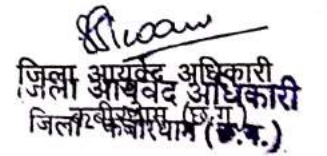 जिला आयुर्वेद अधिकारी
जिला आयुर्वेद अधिकारी
कबीरधाम (छ.ग.)
जिला कबीरधाम (छ.ग.)